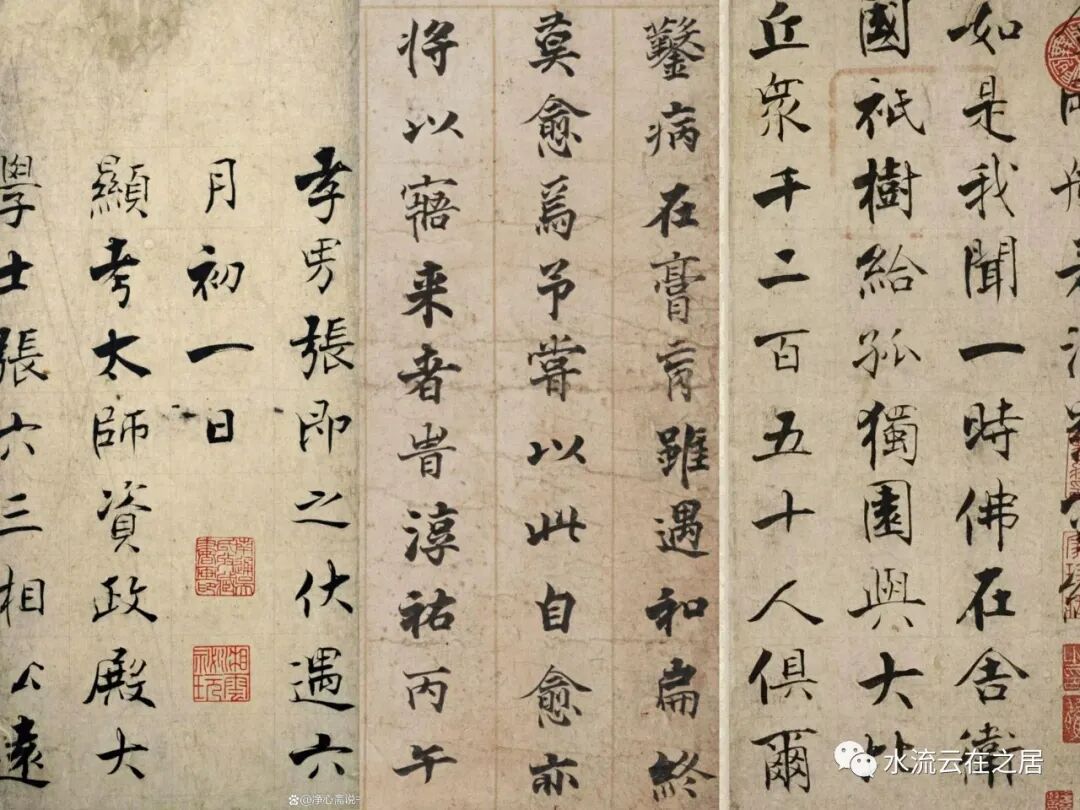 如是我聞一時佛在舍衛
國祇樹給孤獨園與大比
丘衆千二百五十人俱爾
鑿病在膏肓雖遇和扁終
莫愈焉予嘗以此自愈亦
將以寤来者旹淳祐丙午
孝男張即之伏遇六
月初一日
顯考太師資政殿大
學士張六三相公遠
@净心斋说
水流云在之居